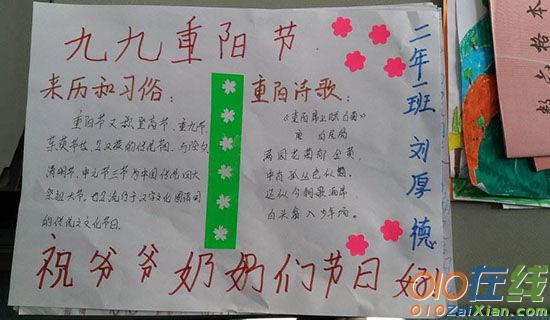 九九重阳节
来历和习俗：
重阳节又称登高节、重九节、
茱萸节
清明节、中元节三节 中国传统四大
祭祖大节。也是流行于汉字文化圈诸国
的传统文化节日。
重阳诗歌：
唐
满园花菊郁金黄，
中有孤丛色似霜。
还似今朝歌酒席，
白头翁入少年场。
二年一班 刘厚德
祝爷爷奶奶们节日好
数学格本
010在线
010ZaiXian.com